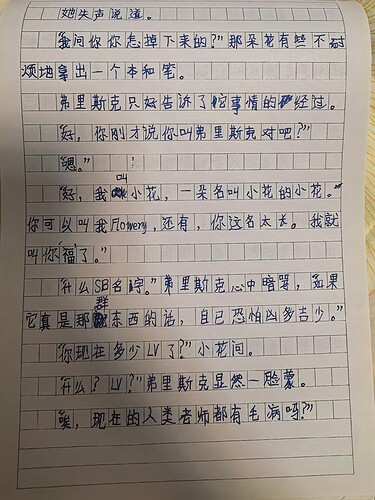 她失声说道。
“我问你你怎掉下来的?”那朵花有些不耐
烦地拿出一个本和笔。
弗里斯克只好告诉了它事情的经过。
“好，你刚才说你叫弗里斯克对吧?”
“嗯。”!
“好，我叫小花，一朵名叫小花的小花。”
你可以叫我Flowery，还有，你这名太长。我就
叫你“福”了。”
“什么SB名字。”弗里斯克心中暗骂，“如果
它真是那群东西的话，自己恐怕凶多吉少。”
“你现在多少LV了?”小花问。
“什么? LV?”弗里斯克显然一脸蒙。
“唉，现在的人类老师都有毛病吗?”